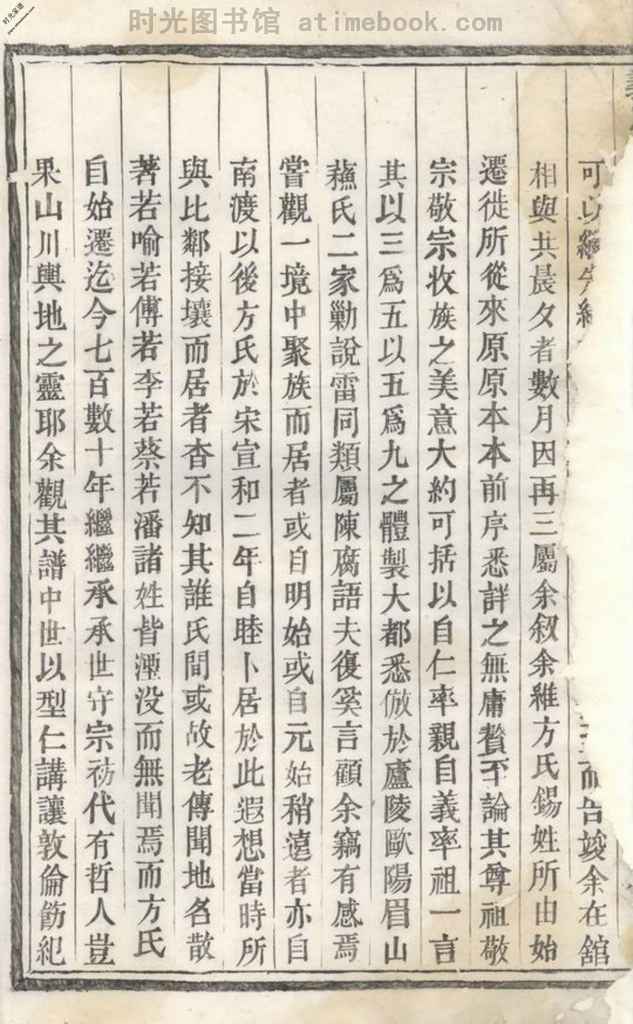 时光图书馆 atimebook.com
时光家谱
可以
而告竣余在舘
相與共晨夕者數月因再三屬余叙余維方氏錫姓所由始
遷徙所從來原原本本前序悉詳之無庸贅至論其尊祖敬
宗敬宗收族之美意大約可括以自仁率親自義率祖一言
其以三爲五以五爲九之體製大都悉倣於廬陵歐陽眉山
蘓氏二家勦說雷同類屬陳腐語夫復奚言顧余竊有感焉
嘗觀一境中聚族而居者或自明始或自元始稍遠者亦自
南渡以後方氏於宋宣和二年自睦卜居於此遐想當時所
與比鄰接壤而居者杳不知其誰氏間或故老傳聞地名散
著若喻若傅若李若蔡若潘諸姓皆湮没而無聞焉而方氏
自始遷迄今七百數十年繼繼承承世守宗祊代有哲人豈
果山川輿地之靈耶余觀其譜中世以型仁講讓敦倫飭紀